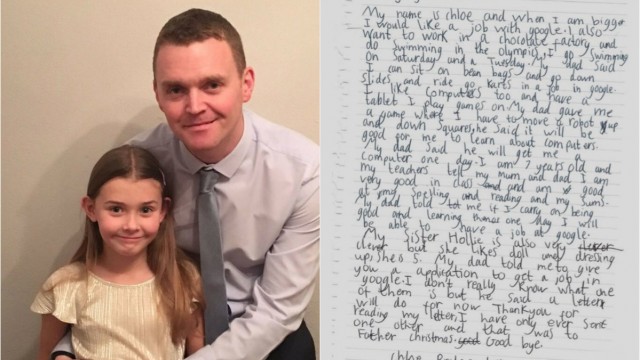 My name is chloe and when I am bigger
I would like a job with google. I also
want to work in a chocolate factory and
do swimming in the olympics. I go swimming
on Saturday and a Tuesday. My dad said
I can sit on bean bags and go down
slides and ride go karts in a job in google.
I like computers too and have a
tablet I play games on. My dad gave me
a game where I have to move a robot up
and down squares, he said it will be
good for me to learn about computers.
My dad said he will get me a
computer one day. I am 7 years old and
my teachers tell my mum and dad I am
very good in class and am good
at my spelling and reading and my sums.
My dad told me if I carry on being
good and learning things one day I will
be able to have a job at google.
My sister Hollie is also very
clever but she likes dolls and dressing
up, she is 5. My dad told me to give
you a application to get a job in
google. I don't really know what one
of them is but he said a letter
will do for now. Thankyou for
reading my letter. I have only ever sent
one other and that was to
Father christmas. Good bye.
Chloe